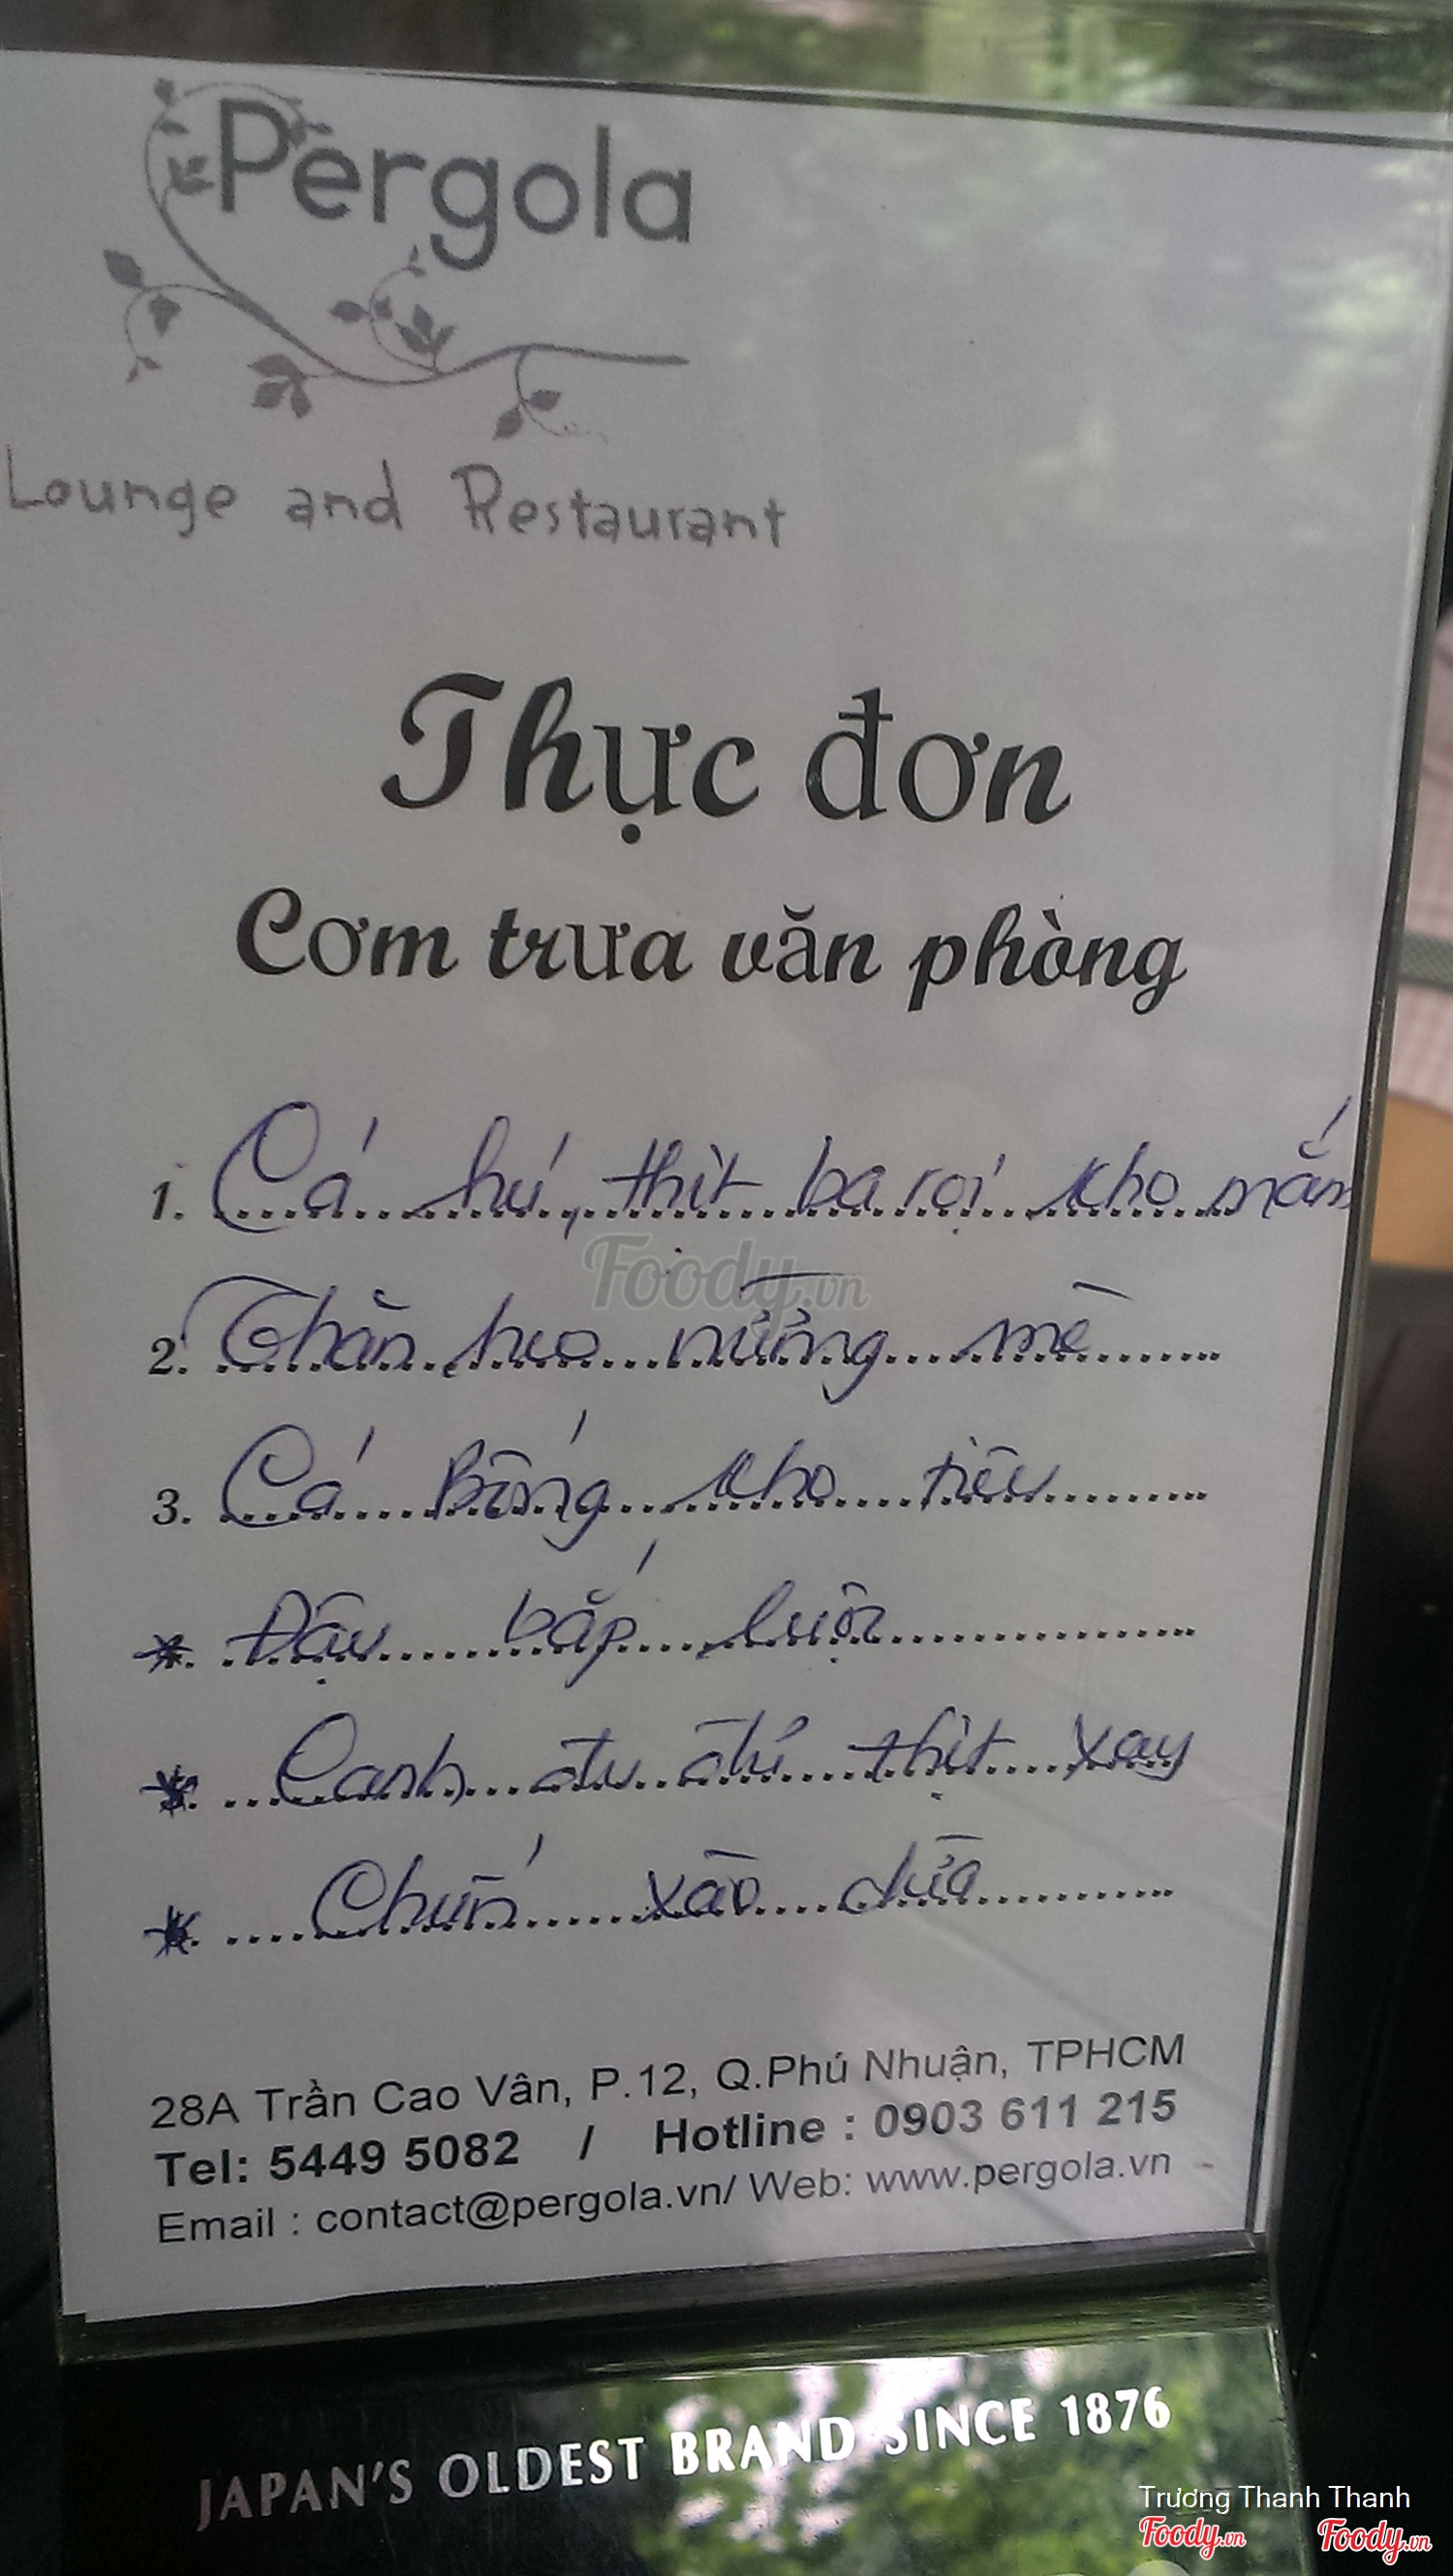 Pergola
Lounge and Restaurant
Thực đơn
Cơm trưa văn phòng
1. Cá hú, thịt ba rọi kho mắm
2. Thăn heo nướng mè
3. Cá Bống kho tiêu
*. Đậu bắp luộc
*. Canh đu đủ thịt xay
*. Chuối xào dừa
Foody.vn
28A Trần Cao Vân, P.12, Q.Phú Nhuận, TPHCM
Tel: 5449 5082 / Hotline : 0903 611 215
Email : contact@pergola.vn/ Web: www.pergola.vn
JAPAN'S OLDEST BRAND SINCE 1876
Trương Thanh Thanh
Foody.vn Foody.vn